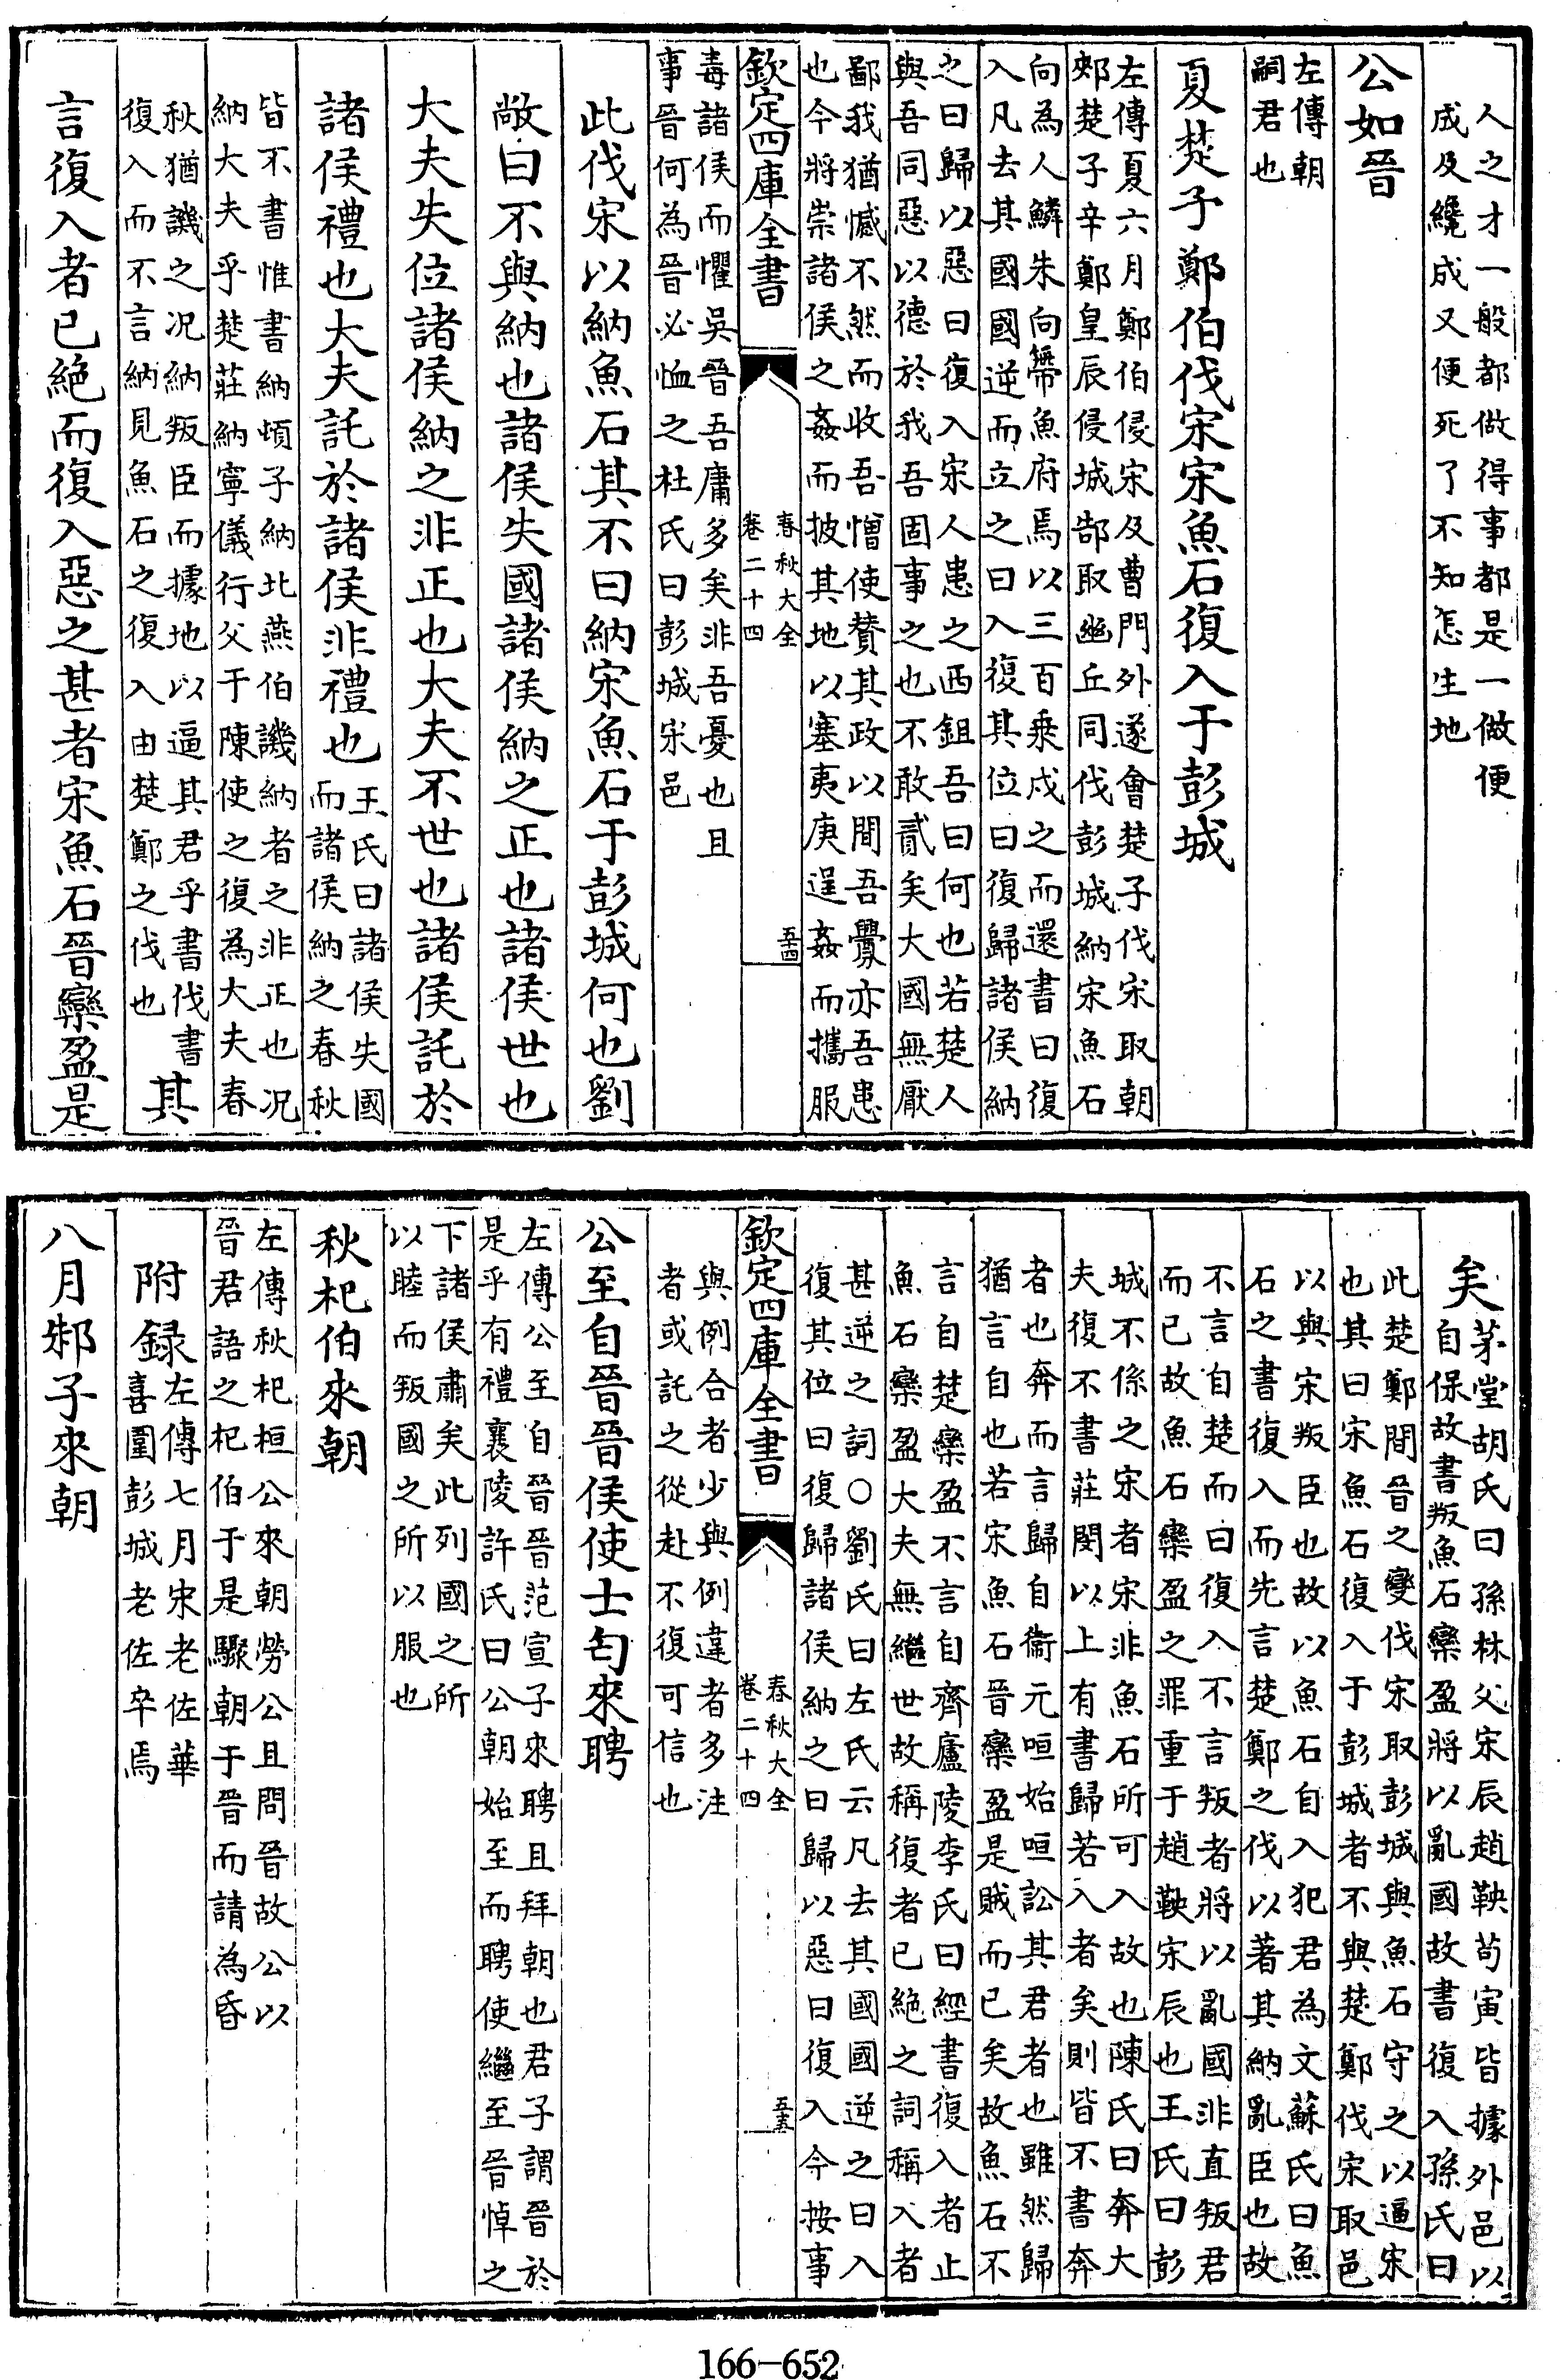 人之才一般都做得事都是一做便
成及纔成又便死了不知怎生地
公如晉
左傳朝
嗣君也
夏楚子鄭伯伐宋宋魚石復入于彭城
左傳夏六月鄭伯侵宋及曹門外遂會楚子伐宋取朝
郟楚子辛鄭皇辰侵城郜取幽丘同伐彭城納宋魚石
向為人鱗朱向帶魚府焉以三百乘戍之而還書曰復
入凡去其國國逆而立之曰入復其位曰復歸諸侯納
之曰歸以惡曰復入宋人患之西鉏吾曰何也若楚人
與吾同惡以德於我吾固事之也不敢貳矣大國無厭
鄙我猶憾不然而收吾憎使贊其政以間吾釁亦吾患
也今將崇諸侯之姦而披其地以塞夷庚逞姦而攜服
欽定四庫全書
春秋大全
卷二十四
五四
毒諸侯而懼吳晉吾庸多矣非吾憂也且
事晉何為晉必恤之杜氏曰彭城宋邑
此伐宋以納魚石其不曰納宋魚石于彭城何也劉
敞曰不與納也諸侯失國諸侯納之正也諸侯世也
大夫失位諸侯納之非正也大夫不世也諸侯託於
諸侯禮也大夫託於諸侯非禮也
王氏曰諸侯失國
而諸侯納之春秋
皆不書惟書納頓子納北燕伯譏納者之非正也况
納大夫乎楚莊納寧儀行父于陳使之復為大夫春
秋猶譏之况納叛臣而據地以逼其君乎書伐書
復入而不言納見魚石之復入由楚鄭之伐也
其
言復入者已絕而復入惡之甚者宋魚石晉欒盈是
矣
茅堂胡氏曰孫林父宋辰趙鞅荀寅皆據外邑以
自保故書叛魚石欒盈將以亂國故書復入孫氏曰
此楚鄭間晉之變伐宋取彭城與魚石守之以逼宋
也其曰宋魚石復入于彭城者不與楚鄭伐宋取邑
以與宋叛臣也故以魚石自入犯君為文蘇氏曰魚
石之書復入而先言楚鄭之伐以著其納亂臣也故
不言自楚而曰復入不言叛者將以亂國非直叛君
而已故魚石欒盈之罪重于趙鞅宋辰也王氏曰彭
城不係之宋者宋非魚石所可入故也陳氏曰奔大
夫復不書莊閔以上有書歸若入者矣則皆不書奔
者也奔而言歸自衞元咺始咺訟其君者也雖然歸
猶言自也若宋魚石晉欒盈是賊而已矣故魚石不
言自楚欒盈不言自齊廬陵李氏曰經書復入者止
魚石欒盈大夫無繼世故稱復者已絕之詞稱入者
甚逆之詞○劉氏曰左氏云凡去其國國逆之曰入
復其位曰復歸諸侯納之曰歸以惡曰復入今按事
欽定四庫全書
春秋大全
卷二十四
五五
與例合者少與例違者多注
者或託之從赴不復可信也
公至自晉晉侯使士匄來聘
左傳公至自晉晉范宣子來聘且拜朝也君子謂晉於
是乎有禮襄陵許氏曰公朝始至而聘使繼至晉悼之
下諸侯肅矣此列國之所
以睦而叛國之所以服也
秋杞伯來朝
左傳秋杞桓公來朝勞公且問晉故公以
晉君語之杞伯于是驟朝于晉而請為昏
附録
左傳七月宋老佐華
喜圍彭城老佐卒焉
八月邾子來朝
166-652